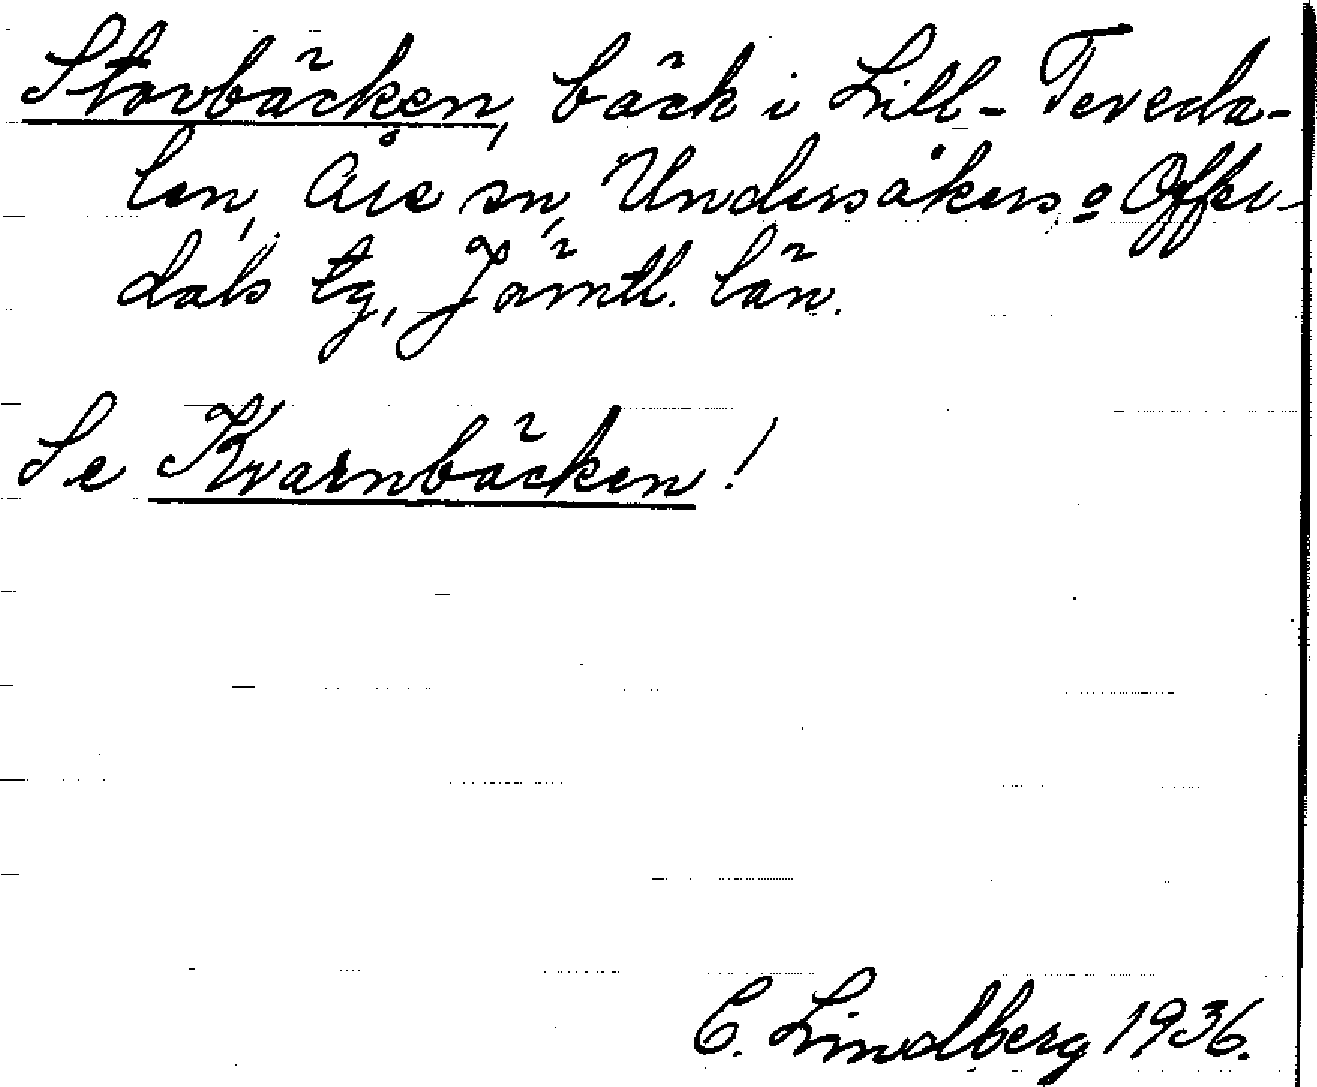 Storbäcken, bäck i Lill-Teveda-
len, Åre sn, Undersåkers o Offer-
dals tg, Jämtl. län.
Se Kvarnbäcken!
C. Lindberg 1936.